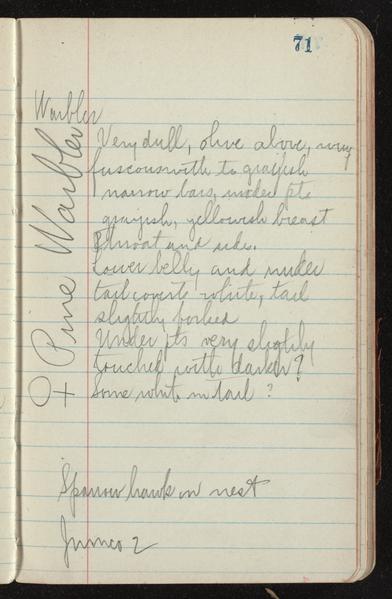 71
Warbler
Very dull, olive above, wing
fuscous with to grayish
narrow bars, under pts
grayish, yellowish breast
throat and side.
Lower belly and under
tail coverts white, tail
slightly forked
Under pts very slightly
touched with darker?
Some white in tail ?
♀ Pine Warbler
Sparrow hawk on nest
Junco 2